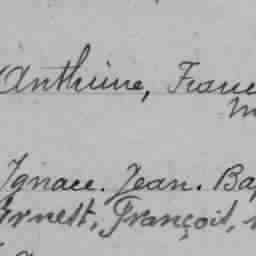 Anthime, Franc
Ignace. Jean. Bap
Ernest, François,